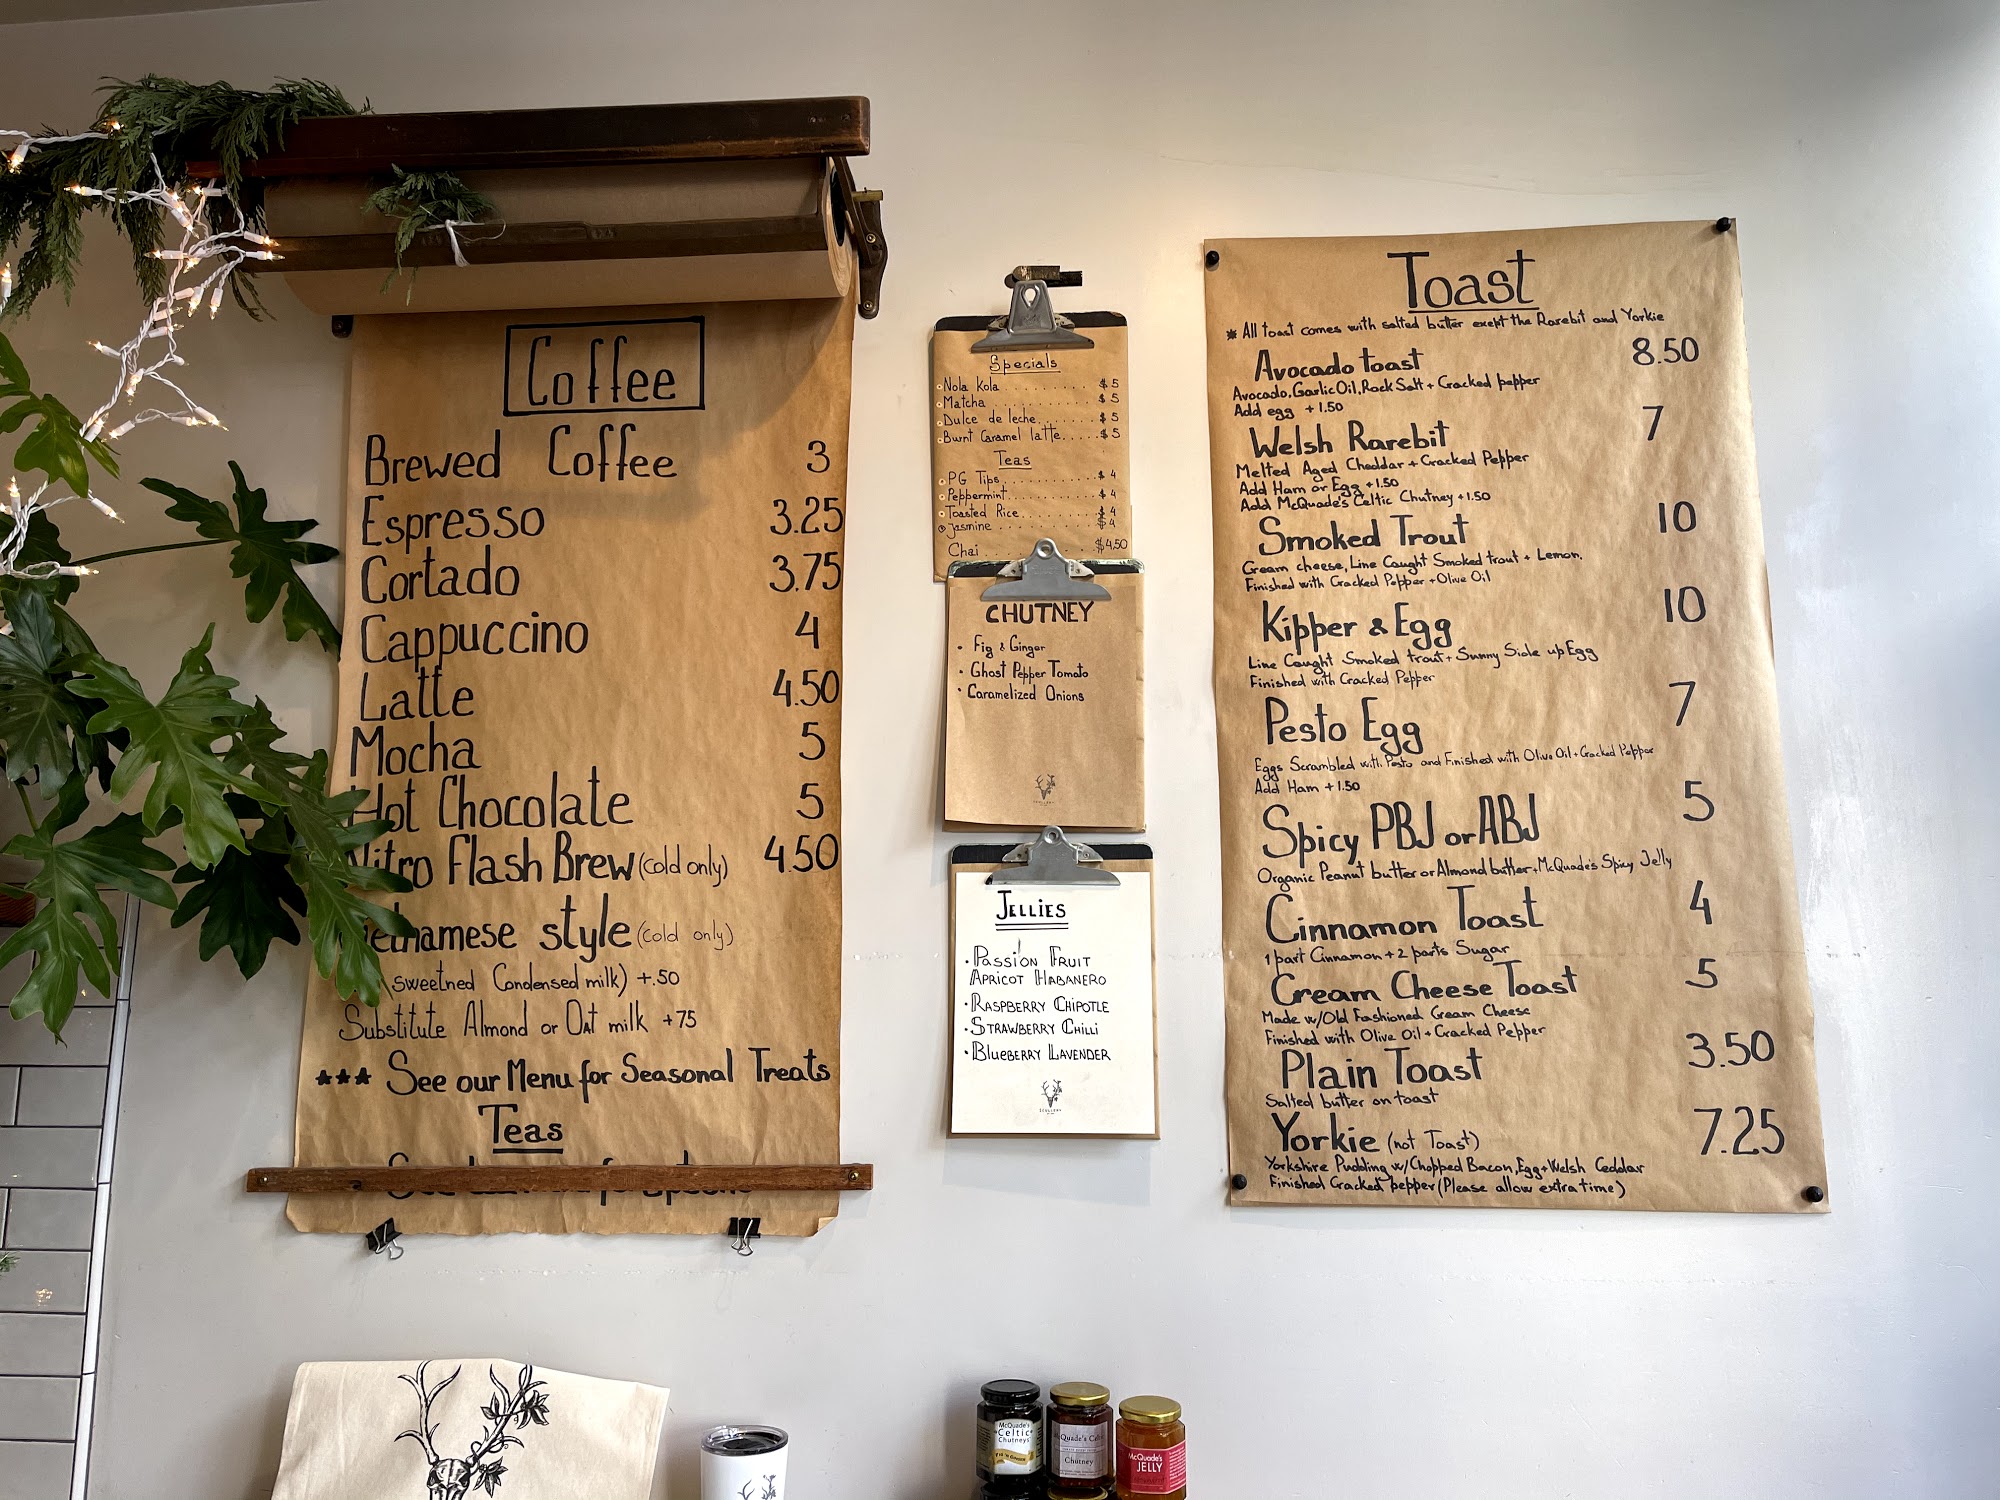 Coffee
Brewed Coffee 3
Espresso 3.25
Cortado 3.75
Cappuccino 4
Latte 4.50
Mocha 5
Hot Chocolate 5
Nitro Flash Brew (cold only) 4.50
Vietnamese style (cold only)
(sweetned Condensed milk) +.50
Substitute Almond or Oat milk +75
*** See our Menu for Seasonal Treats
Teas
Specials
Nola Kola.......... $5
Matcha............ $5
Dulce de leche... $5
Burnt Caramel latte..... $5
Teas
PG Tips............ $4
Peppermint............ $4
Toasted Rice......... $4
Jasmine............ $4
Chai............ $4.50
CHUTNEY
• Fig & Ginger
• Ghost Pepper Tomato
• Caramelized Onions
SCULLERY
JELLIES
• PASSION FRUIT
APRICOT HABANERO
• RASPBERRY CHIPOTLE
• STRAWBERRY CHILLI
• BLUEBERRY LAVENDER
SCULLERY
Toast
* All toast comes with salted butter except the Rarebit and Yorkie
Avocado toast 8.50
Avocado, Garlic Oil, Rock Salt + Cracked pepper
Add egg +1.50
Welsh Rarebit 7
Melted Aged Cheddar + Cracked Pepper
Add Ham or Egg +1.50
Add McQuade's Celtic Chutney +1.50
Smoked Trout 10
Cream cheese, Line Caught Smoked trout + Lemon.
Finished with Cracked Pepper + Olive Oil
Kipper & Egg 10
Line Caught Smoked trout + Sunny Side up Egg
Finished with Cracked Pepper
Pesto Egg 7
Eggs Scrambled with Pesto and Finished with Olive Oil + Cracked Pepper
Add Ham +1.50
Spicy PBJ or ABJ 5
Organic Peanut butter or Almond butter + McQuade's Spicy Jelly
Cinnamon Toast 4
1 part Cinnamon + 2 parts Sugar
Cream Cheese Toast 5
Made w/Old Fashioned Cream Cheese
Finished with Olive Oil + Cracked Pepper
Plain Toast 3.50
Salted butter on toast
Yorkie (not Toast) 7.25
Yorkshire Pudding w/Chopped Bacon, Egg + Welsh Ceddar
Finished Cracked pepper (Please allow extra time)
McQuade's
Celtic
Chutneys
McQuade's Celtic
Chutney
McQuade's
JELLY